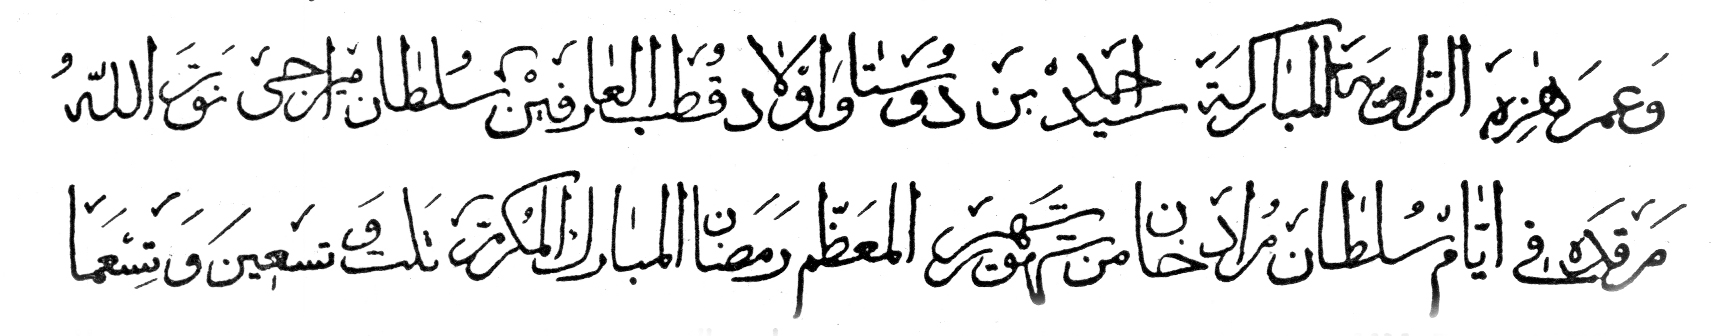 وَعمرَ هٰذِهِ الزّاوِيَةَ المُبٰاركَةَ سَيّد احمد بن دُوسْتٰا وَاَوْلاد قُطْب العٰارفينْ سُلطٰان ميرٰاجى نَوّرَ اللّٰهُ
مَرقَدَهِ في ايّٰام سُلطٰان مُرٰاد خان من شهُور شَهْر المعَظّم رمَضٰان المبٰارك المُكرّمْ ثلٰث وَ تسعين وَ تِسعَمٰا